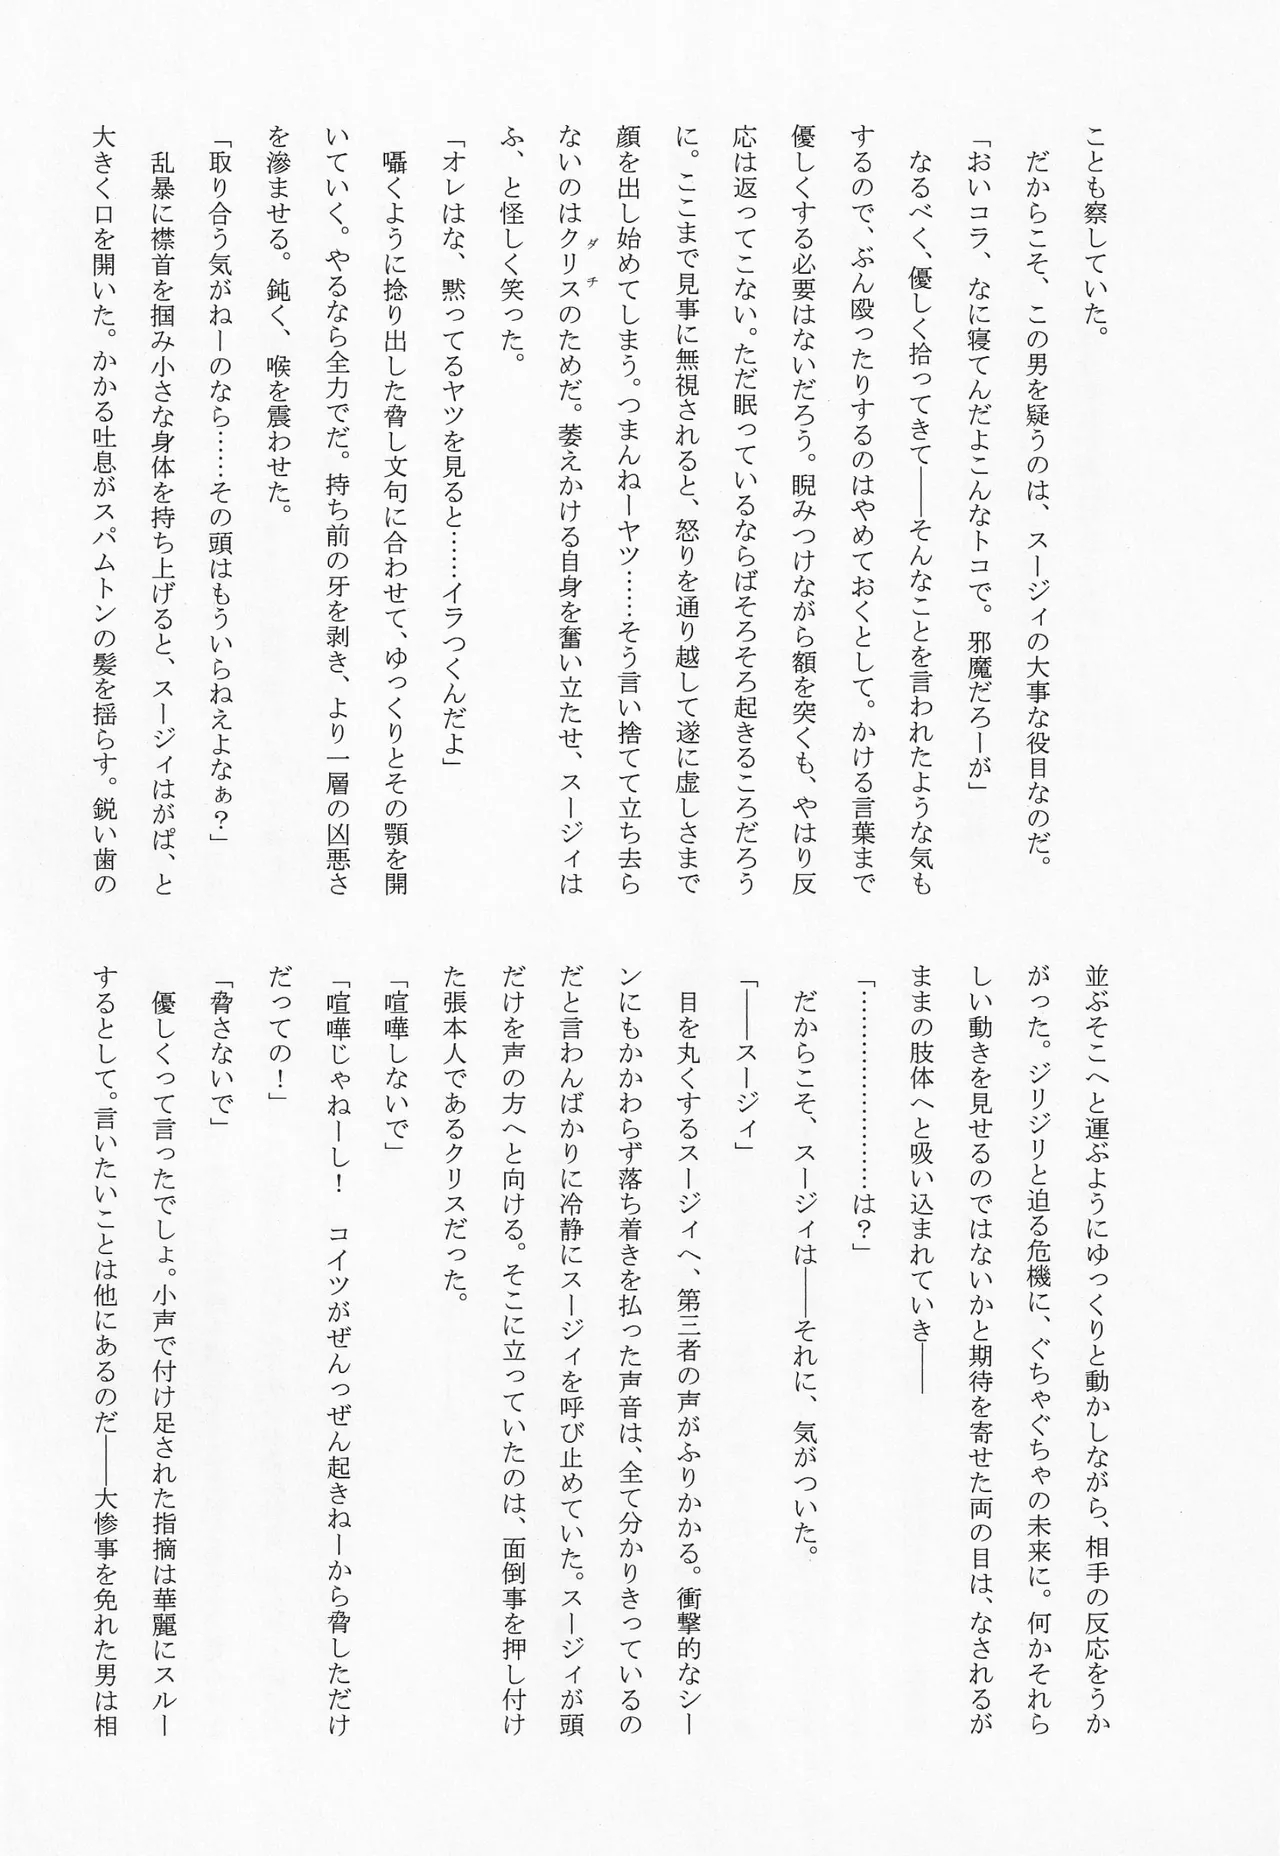 ことも察していた。
　だからこそ、この男を疑うのは、スージィの大事な役目なのだ。
「おいコラ、なに寝てんだよこんなトコで。邪魔だろーが」
　なるべく、優しく拾ってきて――そんなことを言われたような気も
するので、ぶん殴ったりするのはやめておくとして。かける言葉まで
優しくする必要はないだろう。睨みつけながら額を突くも、やはり反
応は返ってこない。ただ眠っているならばそろそろ起きるころだろう
に。ここまで見事に無視されると、怒りを通り越して遂に虚しさまで
顔を出し始めてしまう。つまんねーヤツ……そう言い捨てて立ち去ら
ないのはクリスのためだ。萎えかける自身を奮い立たせ、スージィは
ダチ
ふ、と怪しく笑った。
「オレはな、黙ってるヤツを見ると……イラつくんだよ」
　囁くように捻り出した脅し文句に合わせて、ゆっくりとその顎を開
いていく。やるなら全力でだ。持ち前の牙を剥き、より一層の凶悪さ
を滲ませる。鈍く、喉を震わせた。
「取り合う気がねーのなら……その頭はもういらねえよなぁ？」
　乱暴に襟首を掴み小さな身体を持ち上げると、スージィはがぱ、と
大きく口を開いた。かかる吐息がスパムトンの髪を揺らす。鋭い歯の
並ぶそこへと運ぶようにゆっくりと動かしながら、相手の反応をうか
がった。ジリジリと迫る危機に、ぐちゃぐちゃの未来に。何かそれら
しい動きを見せるのではないかと期待を寄せた両の目は、なされるが
ままの肢体へと吸い込まれていき――
「…………………は？」
　だからこそ、スージィは――それに、気がついた。
「――スージィ」
　目を丸くするスージィへ、第三者の声がふりかかる。衝撃的なシー
ンにもかかわらず落ち着きを払った声音は、全て分かりきっているの
だと言わんばかりに冷静にスージィを呼び止めていた。スージィが頭
だけを声の方へと向ける。そこに立っていたのは、面倒事を押し付け
た張本人であるクリスだった。
「喧嘩しないで」
「喧嘩じゃねーし！　コイツがぜんっぜん起きねーから脅しただけ
だっての！」
「脅さないで」
　優しくって言ったでしょ。小声で付け足された指摘は華麗にスルー
するとして。言いたいことは他にあるのだ――大惨事を免れた男は相